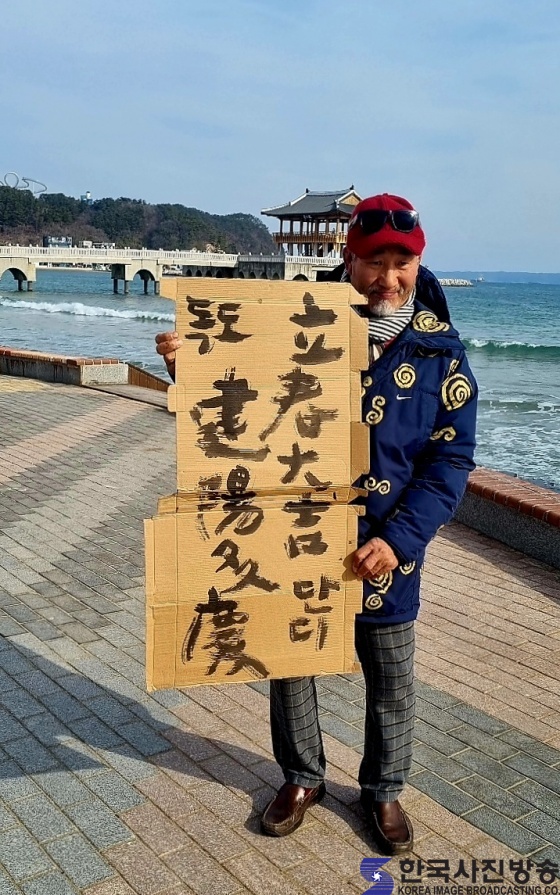 立春大吉 단디
建陽多慶
한국사진방송
KOREA IMAGE BROADCASTING